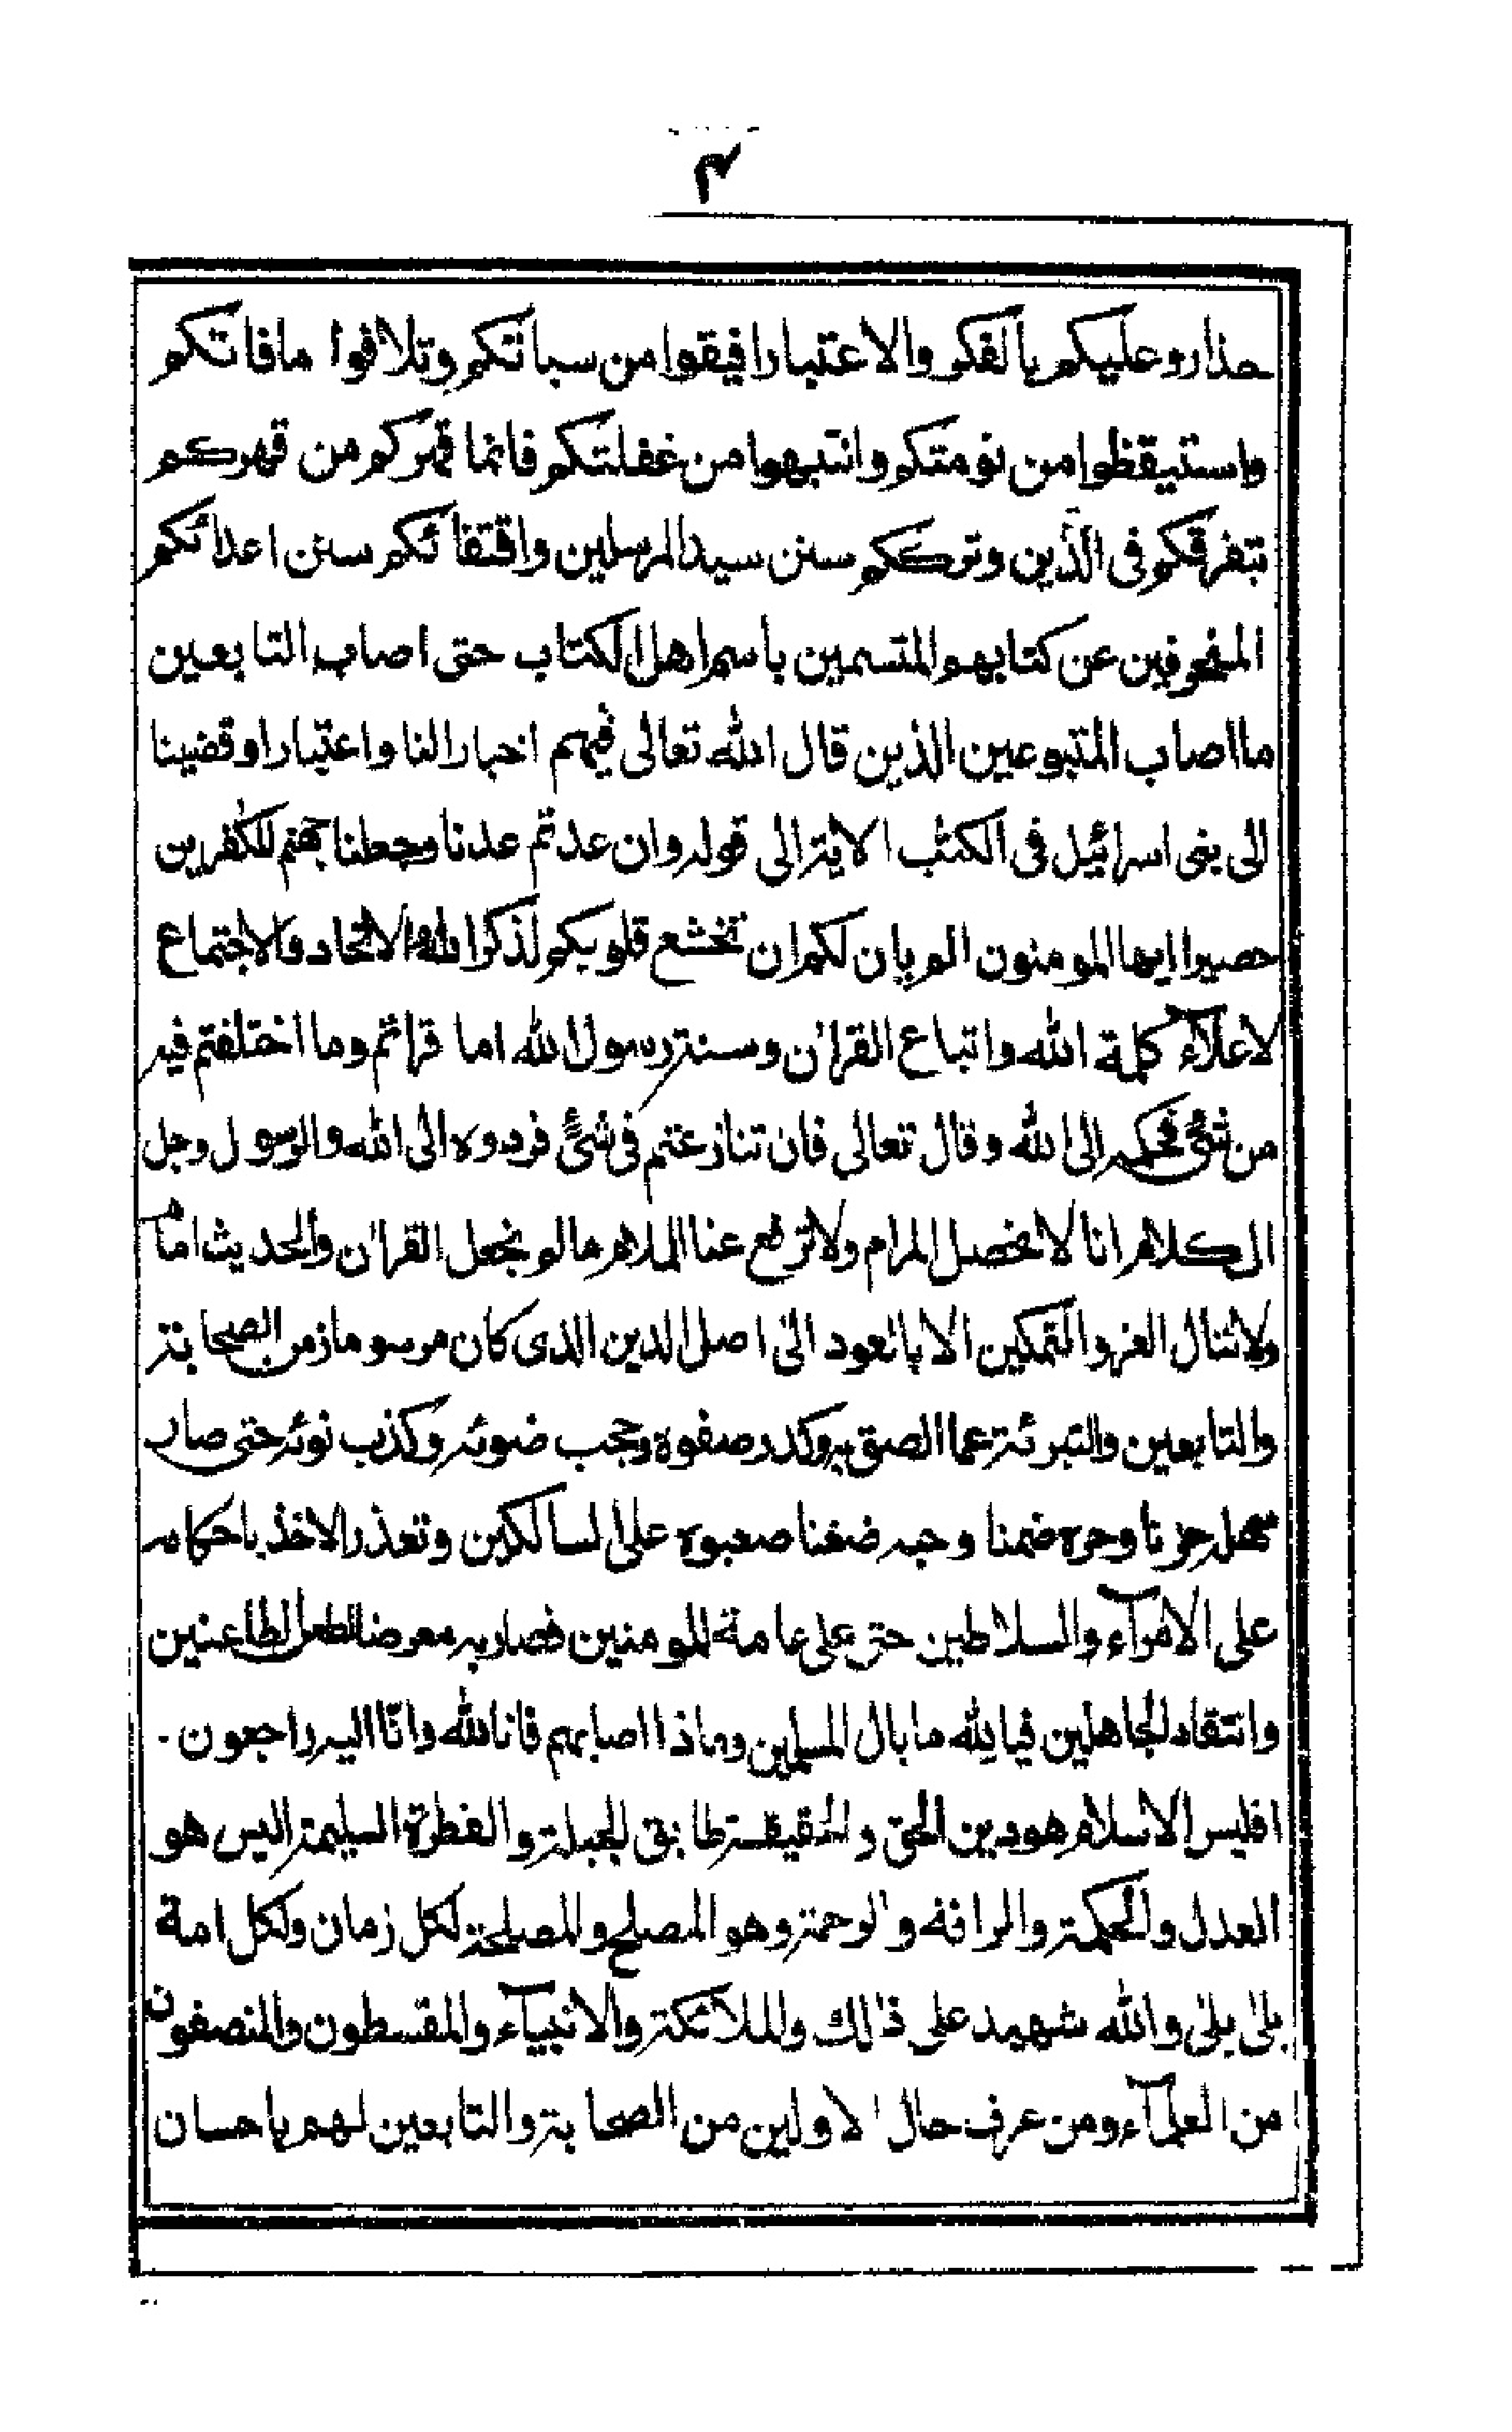 ۴
حذار وعليكم بالفكر والاعتبار افيقوا من سباتكم وتلافوا ما فاتكم
واستيقظوا من نومتكم وانتبهوا من غفلتكم فانما قهركم من قهركم
بتفرقكم فى الدّين وترككم سنن سيد المرسلين واقتفائكم سنن اعدائكم
عن كتابهم والمتسمين باسم اهل الكتاب حتى اصاب التابعين
ما اصاب المتبوعين الذين قال الله تعالى فيهم اخبارا لنا واعتبارا وقضينا
الى بنى اسرائيل فى الكتٰب الاية الى قوله وان عدتم عدنا وجعلنا جهنم للكٰفرين
حصيرا ايها المومنون الم يان لكم ان تخشع قلوبكم لذكر الله والاتحاد والاجتماع
لاعلآء كلمة الله واتباع القراٰن وسنة رسول الله اما قرائتم وما اختلفتم فيه
من شئ فحكمه الى الله وقال تعالى فان تنازعتم فى شئ فردوه الى الله والرسول وجل
الكلام انا لا نحصل المرام ولا ترفع عنا الملام ما لم نجعل القراٰن والحديث اماما
ولا ننال العز والتمكين الا بالعود الى اصل الدين الذى كان مرسوما زمن الصحابة
والتابعين والتبرئة عما الصق به وكدر صفوه وحجب ضوئه وكذب نوئه حتى صار
سهله حزنا وحزه ضمنا وحبه ضغنا صعبوه على السالكين وتعذر الاخذ باحكامه
على الامرآء والسلاطين حتى على عامة المومنين فصار به معرضا لطعن الطاعنين
وانتقاد الجاهلين فيا لله ما بال المسلمين وماذا اصابهم فانا لله وانّا اليه راجعون .
افليس الاسلام هو دين الحق والحقيقة طابق الجبلة والفطرة السليمة اليس هو
العدل والحكمة والرافة والرحمة وهو المصلح والمصلحة لكل زمان ولكل امة
بلىٰ بلىٰ والله شهيد على ذٰلك والملآئكة والانبيآء والمقسطون والمنصفون
من العلمآء ومن عرف حال الاولين من الصحابة والتابعين لهم باحسان